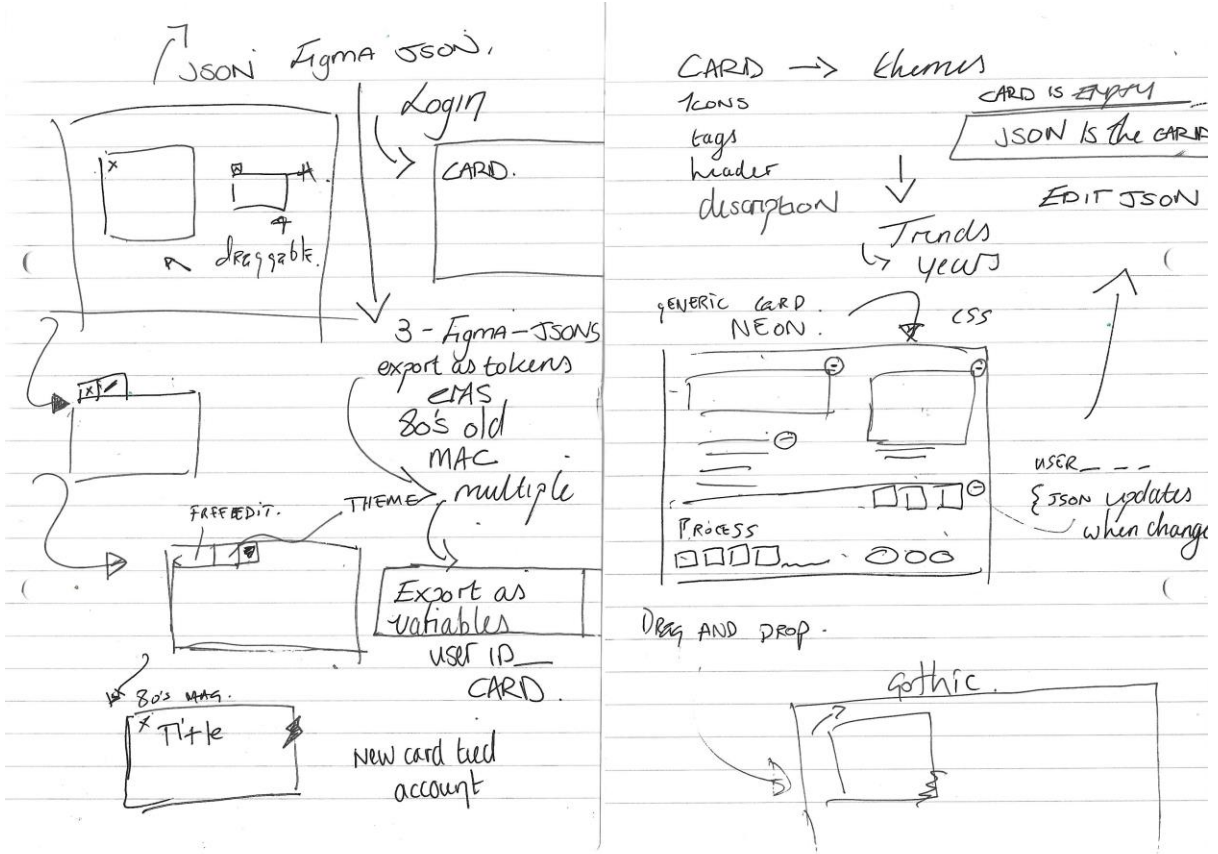 JSON Figma JSON.
Login
x
CARD.
draggable.
3 - Figma - JSONS
export as tokens
eras
80's old
MAC
multiple
x
FREE EDIT.
THEME
Export as
variables
user ID__
CARD.
80's MAG.
x Title
New card tied
account
CARD → themes
Icons
tags
header
description
CARD IS EMPTY
JSON Is the CARD
EDIT JSON
Trends
years
GENERIC CARD.
NEON.
CSS
PROCESS
USER_ _ _
{ JSON updates
when change
DRAG AND DROP.
Gothic.